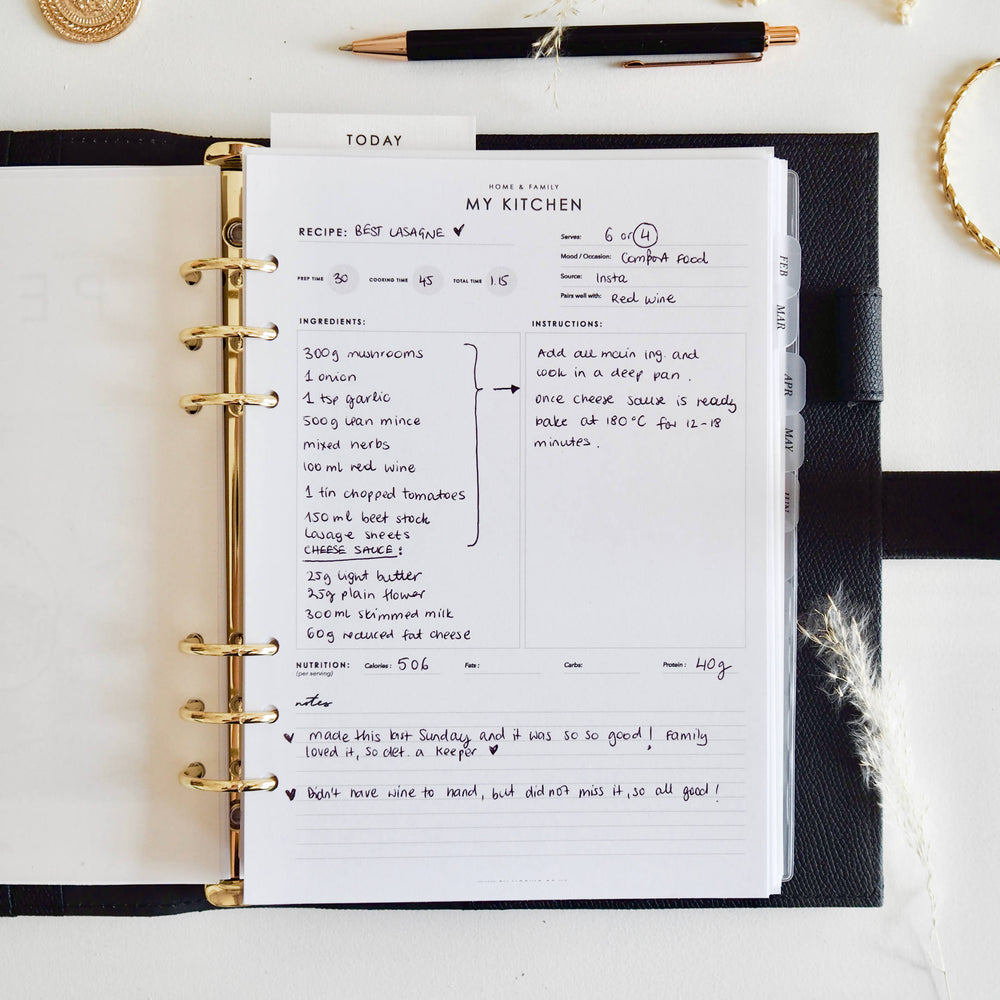 TODAY
HOME & FAMILY
MY KITCHEN
RECIPE: BEST LASAGNE
Serves: 6 or 4
Mood / Occasion: Comfort Food
Source: Insta
Pairs well with: Red wine
PREP TIME 30 COOKING TIME 45 TOTAL TIME 1.15
INGREDIENTS:
300g mushrooms
1 onion
1 tsp garlic
500g lean mince
mixed herbs
100 ml red wine
1 tin chopped tomatoes
150 ml beef stock
Lasage sheets
CHEESE SAUCE:
25g light butter
25g plain flower
300 ml skimmed milk
60g reduced fat cheese
INSTRUCTIONS:
Add all main ing. and
cook in a deep pan.
once cheese sause is ready
bake at 180°C for 12-18
minutes.
NUTRITION: Calories: 506 Fats: Carbs: Protein: 40g
(per serving)
notes
made this last Sunday and it was so so good! Family
loved it, so def. a keeper
Didn't have wine to hand, but did not miss it, so all good!
FEB
MAR
APR
MAY
JUN